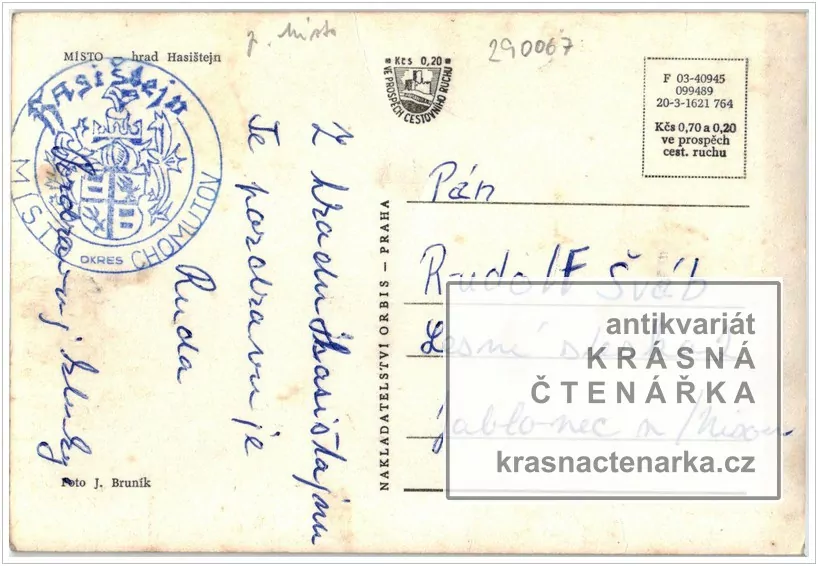 MÍSTO — hrad Hasištejn
p. Místo
290067
Kčs 0,20
VE PROSPĚCH CESTOVNÍHO RUCHU
F 03-40945
099489
20-3-1621 764
Kčs 0,70 a 0,20
ve prospěch
cest. ruchu
Hasištejn
MÍSTO
OKRES CHOMUTOV
Z hradu Hasištajnu
Te pozdravuje
Ruda
Pozdravuj
Foto J. Bruník
NAKLADATELSTVÍ ORBIS — PRAHA
Pán
Rudolf Šváb
Lesní
Jablonec n/Nisou
antikvariát
KRÁSNÁ
ČTENÁŘKA
krasnactenarka.cz